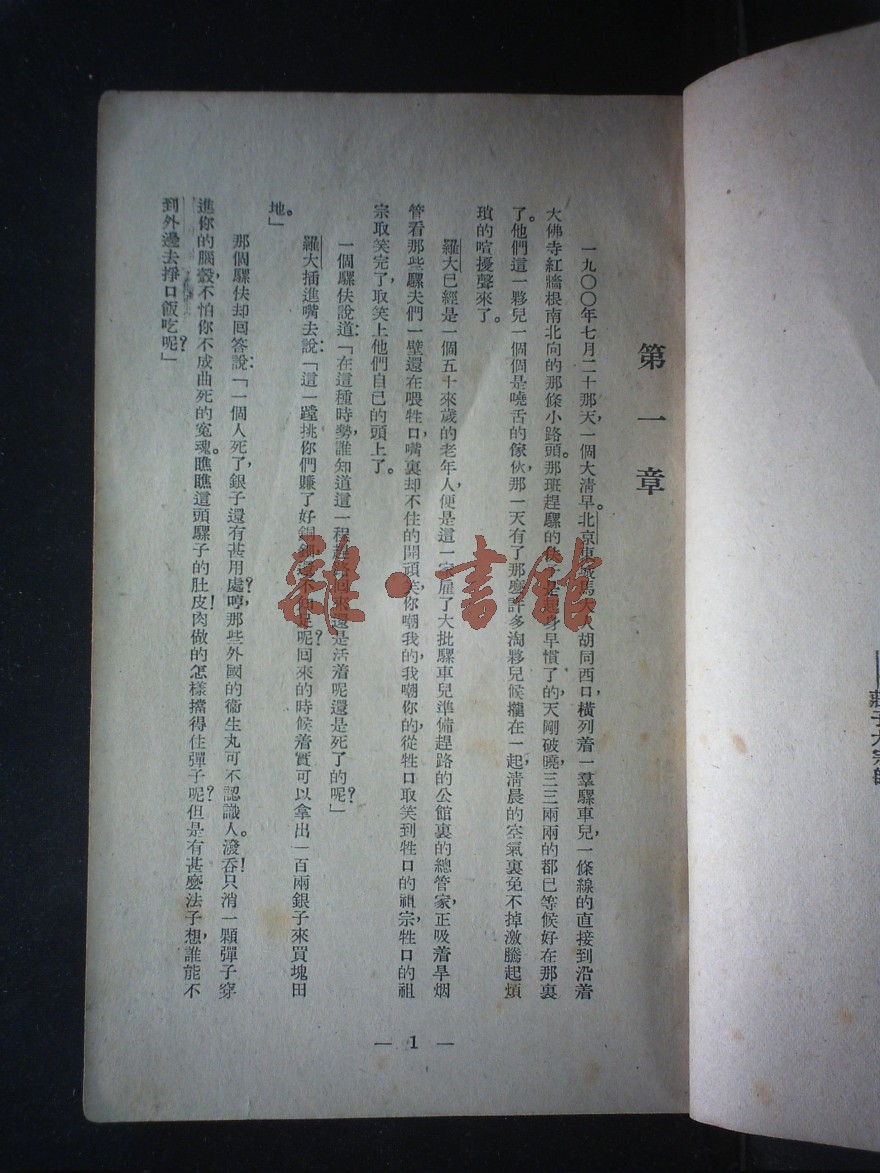 第一章
一九〇〇年七月二十那天，一個大清早。北京東城馬大人胡同西口，橫列着一羣騾車兒，一條線的直接到沿着
大佛寺紅牆根南北向的那條小路頭。那班趕騾的伕子是起身早慣了的，天剛破曉，三三兩兩的都已等候好在那裏
了。他們這一夥兒一個個是嘵舌的傢伙，那一天有了那麼許多淘夥兒候攏在一起，清晨的空氣裏免不掉激騰起煩
瑣的喧擾聲來了。
羅大已經是一個五十來歲的老年人，便是這一家雇了大批騾車兒準備趕路的公館裏的總管家，正吸着旱烟
管看那些騾夫們一壁還在喂牲口，嘴裏却不住的開頑笑，你嘲我的，我嘲你的，從牲口取笑到牲口的祖宗，牲口的祖
宗取笑完了，取笑上他們自己的頭上了。
一個騾伕說道：「在這種時勢，誰知道這一程趕路回來還是活着呢還是死了的呢？」
羅大插進嘴去說：「這一蹚挑你們賺了好銅鈿還不知足呢？回來的時候着實可以拿出一百兩銀子來買塊田
地。」
那個騾伕却回答說：「一個人死了，銀子還有甚用處？哼，那些外國的衞生丸可不認識人。潑吞！只消一顆彈子穿
進你的腦殼，不怕你不成曲死的寃魂。瞧瞧這頭騾子的肚皮！肉做的怎樣擋得住彈子呢？但是有甚麼法子想，誰能不
到外邊去掙口飯吃呢？」
— 1 —
雜·書館